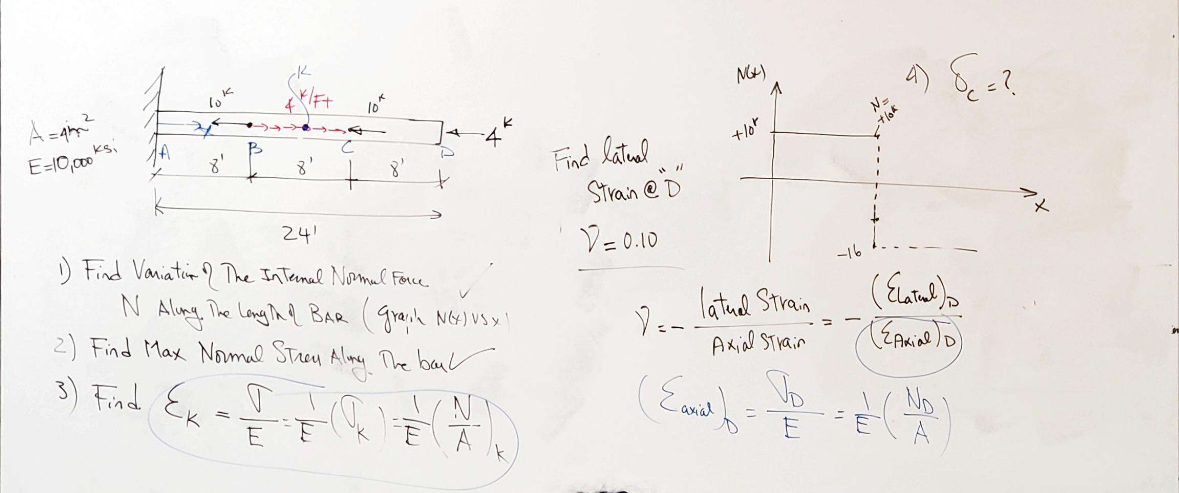 10ᴷ
K
4 ᴷ/Ft
10ᴷ
4ᴷ
A = 4in²
E=10,000 ksi
A
B
C
D
8'
8'
8'
24'
1) Find Variation of The Internal Normal Force
N Along The Length of BAR (Graph N(x) vs x)
2) Find Max Normal Stress Along The bar
3) Find εK = σ/E = 1/E (σK) = 1/E (N/A)K
Find lateral
Strain @ "D"
ν = 0.10
N(x)
+10ᴷ
N=
+10ᴷ
-16
x
4) δC = ?
ν = - lateral Strain / Axial Strain = - (εLateral)D / (εAxial)D
(εaxial)D = σD/E = 1/E (ND/A)